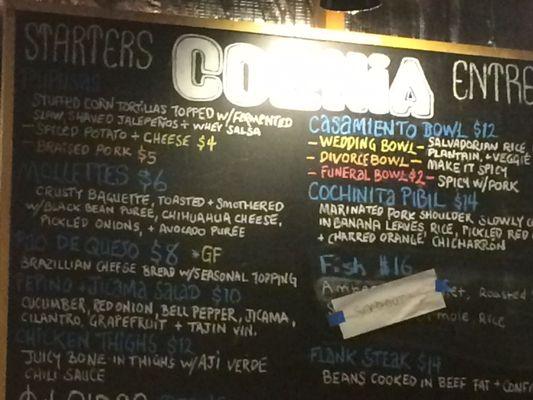 STARTERS
PUPUSAS
STUFFED CORN TORTILLAS TOPPED W/FERMENTED
SLAW, SHAVED JALEPEÑOS + WHEY SALSA
- SPICED POTATO + CHEESE $4
- BRAISED PORK $5
MOLLETTES $6
CRUSTY BAGUETTE, TOASTED + SMOTHERED
W/BLACK BEAN PUREE, CHIHUAHUA CHEESE,
PICKLED ONIONS, + AVOCADO PUREE
PAO DE QUESO $8 *GF
BRAZILLIAN CHEESE BREAD W/SEASONAL TOPPING
PEPINO + JICAMA SALAD $10
CUCUMBER, RED ONION, BELL PEPPER, JICAMA,
CILANTRO, GRAPEFRUIT + TAJIN VIN.
CHICKEN THIGHS $12
JUICY BONE-IN THIGHS W/AJI VERDE
CHILI SAUCE
COLONIA
ENTRE
CASAMIENTO BOWL $12
- WEDDING BOWL - SALVADORIAN RICE,
PLANTAIN, + VEGGIE
- DIVORCE BOWL - MAKE IT SPICY
- FUNERAL BOWL $2 - SPICY W/PORK
COCHINITA PIBIL $14
MARINATED PORK SHOULDER, SLOWLY
IN BANANA LEAVES, RICE, PICKLED RED
+ CHARRED ORANGE, CHICHARRON
Fish $16
Roasted
Rice
FLANK STEAK $14
BEANS COOKED IN BEEF FAT +